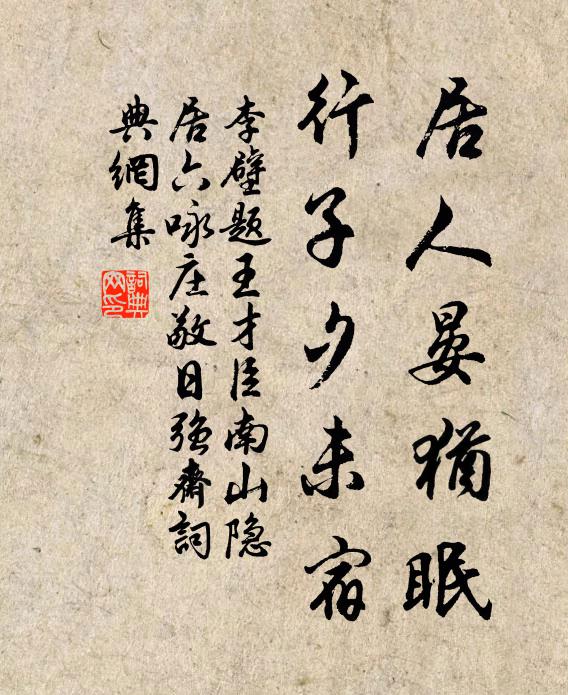 居人晏猶眠
行子夕未宿
李壁题王才臣南山隐
居六咏庄敬日强齋詞
典網集
詞典網印